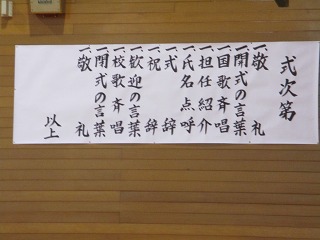 式次第
一、敬礼
一、開式の言葉
一、国歌斉唱
一、担任紹介
一、氏名点呼
一、式辞
一、祝辞
一、歓迎の言葉
一、校歌斉唱
一、閉式の言葉
一、敬礼
以上